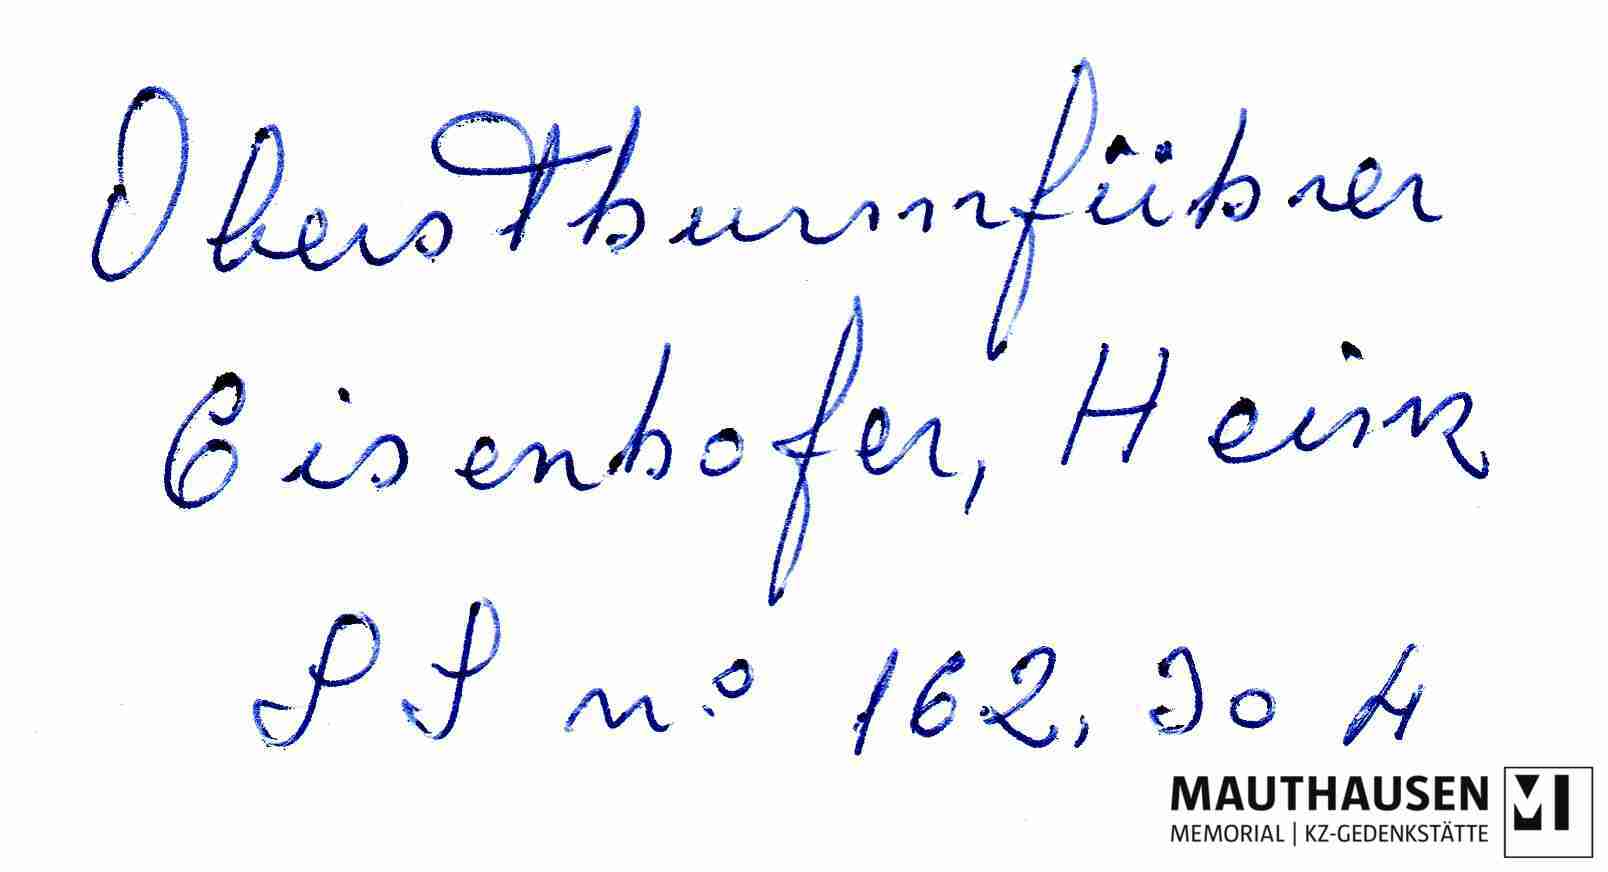 Obersthurmführer
Eisenhofer, Hein
SS n.º 162, 304
MAUTHAUSEN
MEMORIAL | KZ-GEDENKSTÄTTE